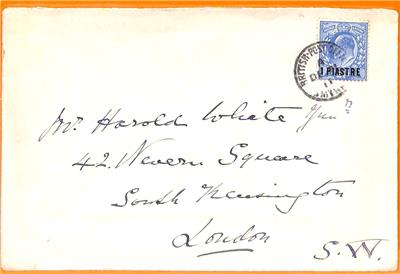 BRITISH POST OFFICE
1 PIASTRE
Mr. Harold White
42. Nevern Square
South Kensington
London
S.W.